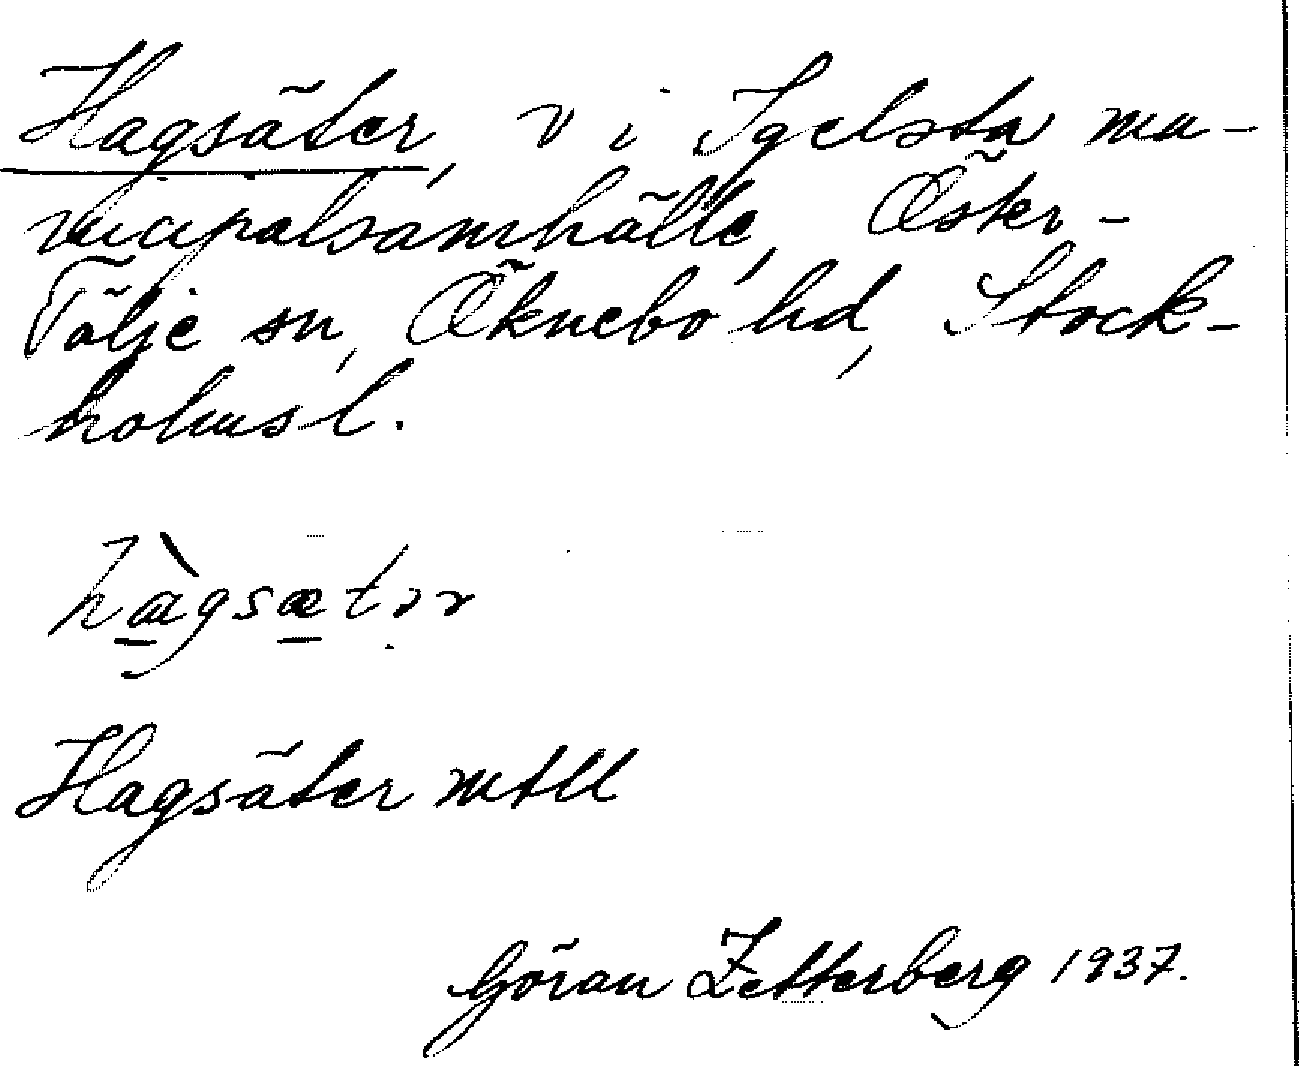 Hagsäter, v i Igelsta mu-
nicipalsamhälle, Öster-
Tälje sn, Öknebo hd, Stock-
holms l.
hàgsætər
Hagsäter mtll
Göran Zetterberg 1937.